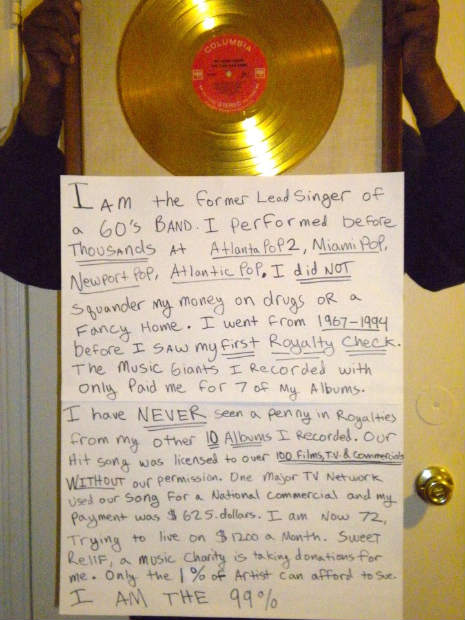 COLUMBIA
STEREO
I AM the former Lead Singer of
a 60's BAND. I performed before
Thousands At Atlanta Pop 2, Miami Pop,
Newport Pop, Atlantic Pop. I did NOT
squander my money on drugs or a
Fancy Home. I went from 1967-1994
before I saw my first Royalty Check.
The Music Giants I Recorded with
only paid me for 7 of my Albums.
I have NEVER seen a penny in Royalties
from my other 10 Albums I Recorded. Our
Hit song was licensed to over 100 Films, T.V. & Commercials
WITHOUT our permission. One Major TV Network
used our song for a National commercial and my
payment was $ 625. dollars. I am now 72,
Trying to live on $1200 a Month. SWEET
Relief, a music Charity is taking donations for
me. Only the 1% of Artist can afford to sue.
I AM THE 99%